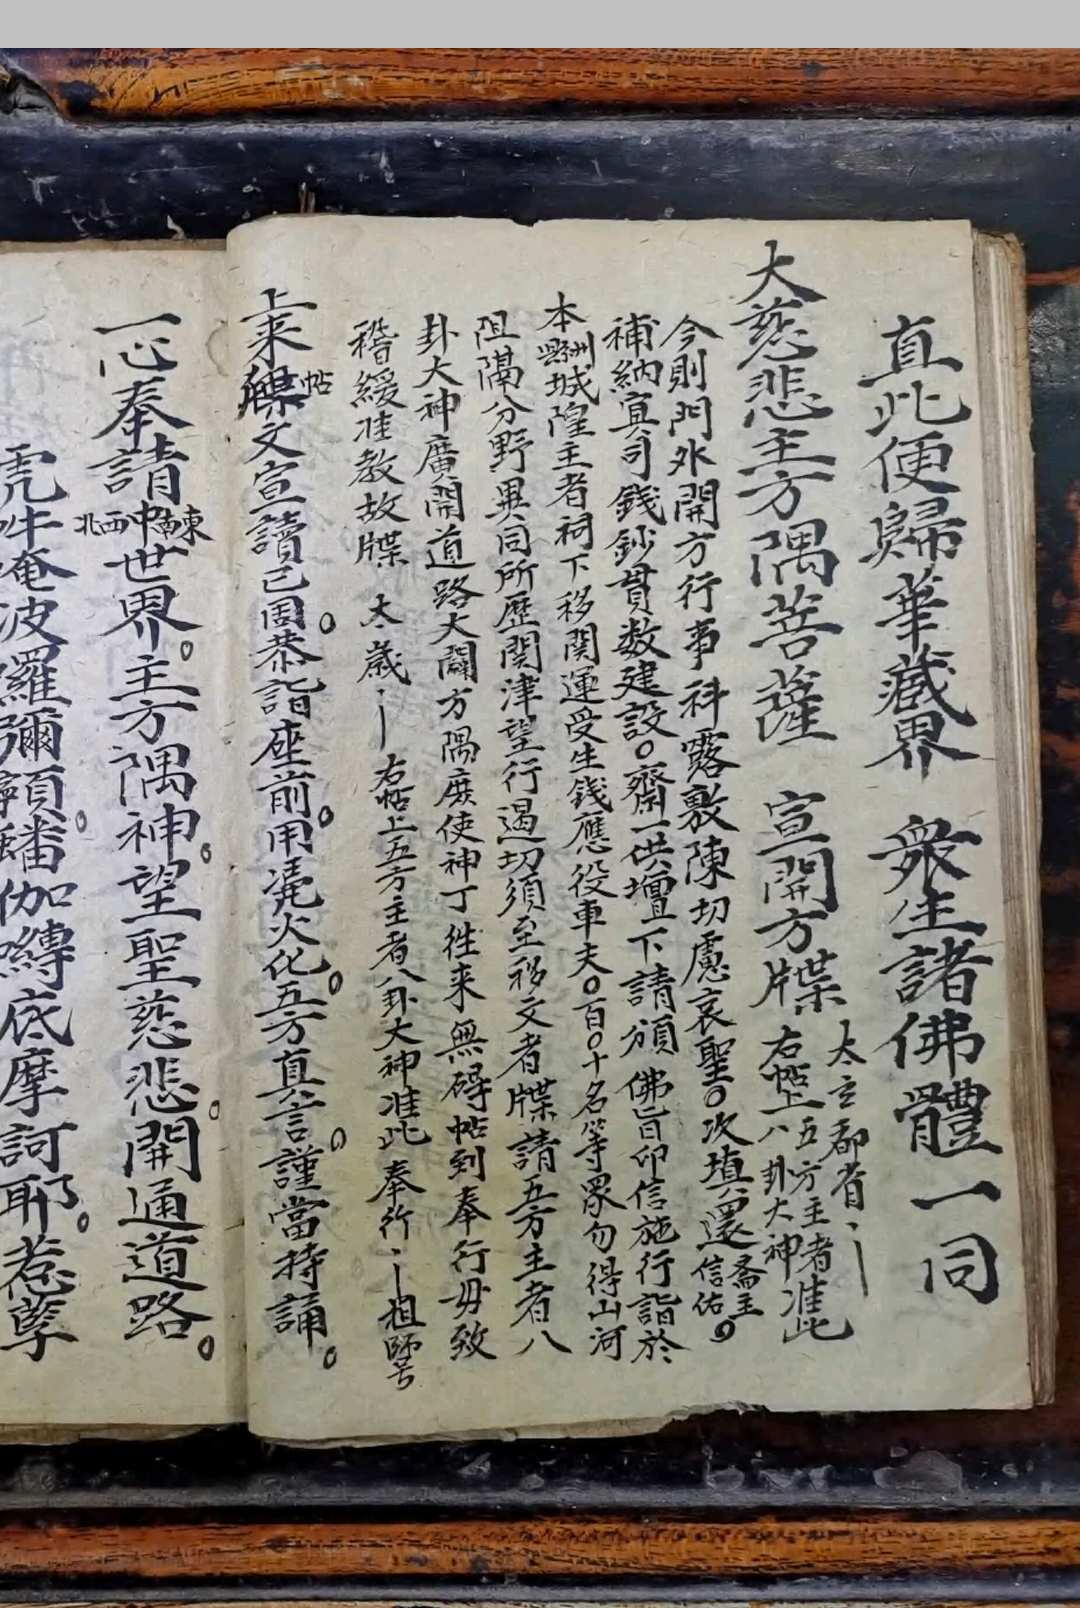 直此便歸華藏界　眾生諸佛體一同
大慈悲主方隅菩薩　宣開方牒　太玄都省
右帖上五方主者八卦大神准此
今則門外開方行事科露敷陳切慮哀聖○次填還斋主信佑○
補納冥司錢鈔貫数建設○齋一供壇下請頒佛旨印信施行詣於
本州縣城隍主者祠下移関運受生錢應役車夫○百○十名等眾勿得山河
阻隔分野異同所歷関津望行遏切須至移文者牒請五方主者八
卦大神廣開道路大闢方隅庻使神丁徃来無碍帖到奉行毋致
稽緩准教故牒　太歲　右帖上五方主者八卦大神准此奉行　祖師号
上来牒帖文宣讀已周恭詣座前用凴火化五方真言謹當持誦
一心奉請東南中西北世界主方隅神望聖慈悲開通道路
吽唵波羅彌頓皤伽嚩底摩訶耶惹孽